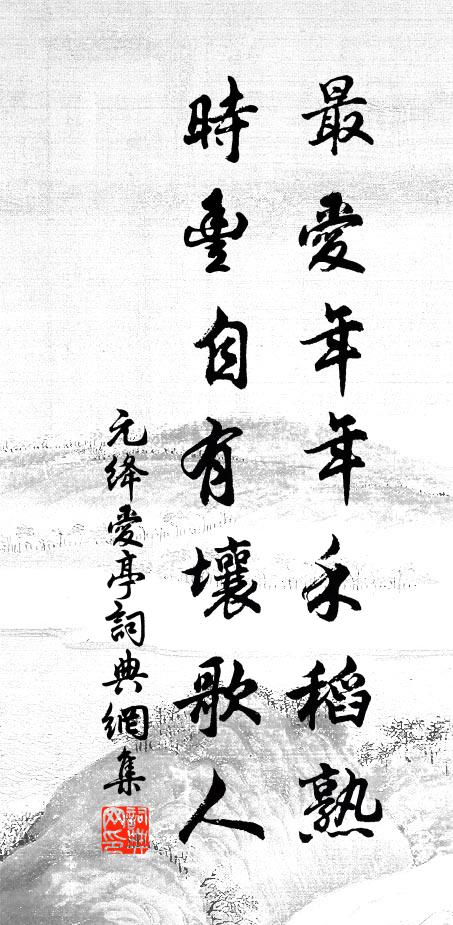 最愛年年禾稻熟
時豐自有壤歌人
元絳愛亭詞典網集